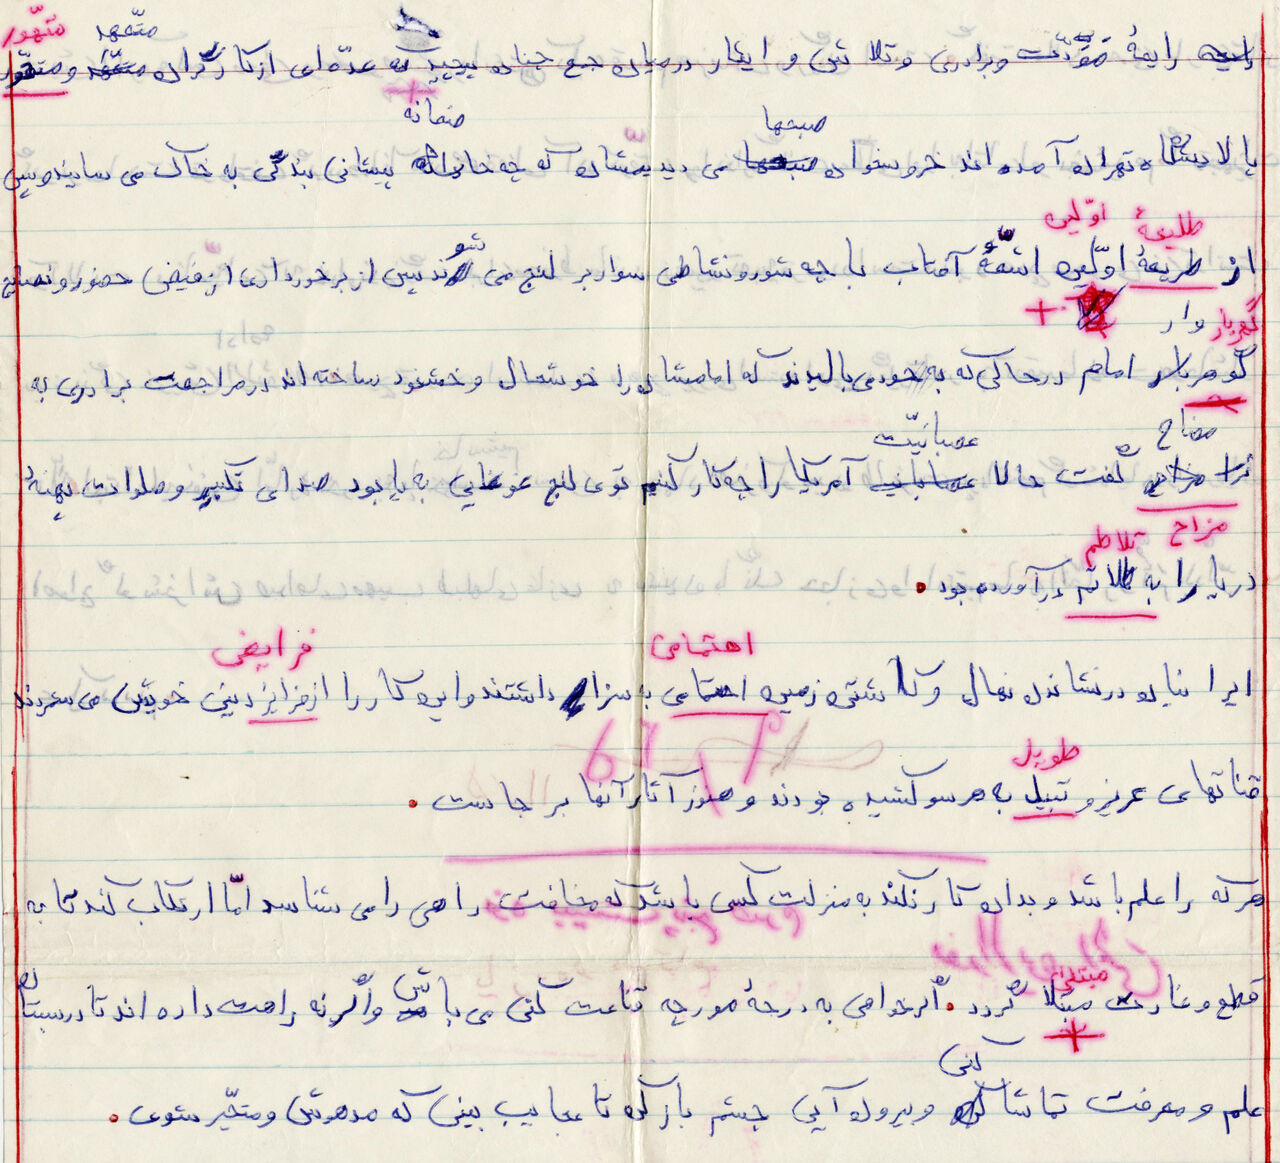 متعهد متهّور
رایحه رایحهٔ مَوَدّت و برادری و تلاش و ایثار در میان جمع چنان پیچید که عدّه‌ای از کارگران متعهد و متحوّر
صبحها صمانه
پالایشگاه تهران آمده‌اند خروسخوان صبحها می دیدیمشان که چه خالصانه پیشانی بندگی به خاک می سایند و سپس
طلیعهٔ اوّلین
از طریعهٔ اوّلین اشعّهٔ آفتاب با چه شور و نشاطی سوار بر لنج می شوند سپس از برخورداری از فیض حضور و نصایح
گهربار وار
گوهربار امام در حالی که به خود می بالیدند که امامشان را خوشحال و خشنود ساخته‌اند در مراجعت برادری به
مضاح عصبانیّت
مزاح گفت حالا عصبانیت آمریکا را چه کار کنیم توی لنج غوغایی به پا بود صدای تکبیر و صلوات پهنهٔ
مزاح تلاطم
دریا را به طلاتم در آورده بود.
اهتمامی فرایض
ایرانیان در نشاندن نهال و کاشتن زمین احتمامی به سزا داشتند و این کار را از فرایز دینی خویش می شمردند
طویل
قناتهای عریض و تبیل به هر سو کشیده بودند و هنوز آثار آنها بر جاست.
هر که را علم باشد و بدان کار نکند به منزلت کسی باشد که مخافت راهی را می شناسد امّا ارتکاب کند تا به
مبتلی
قطع و غارت مبتلا گردد. اگر خواهی به درجهٔ مورچه قناعت کنی می باش و اگر نه راهت داده‌اند تا در بستان
کنی
علم و معرفت تماشا کن و بیرون آیی چشم باز کن تا عجایب بینی که مدهوش و متحیّر شوی.